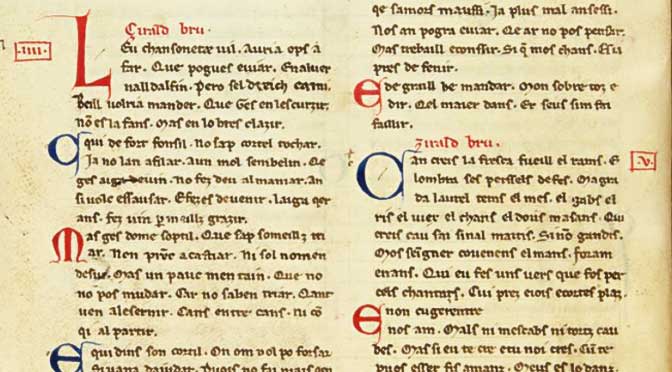 .iiii.
Girald bru.
Leu chansoneta uil. Auria ops a
far. Que pogues euiar. En aluer
nall dalfin. Pero sel
Beill uolria mander. Que ges en lescurzir.
nō es la fans. Mas en lo bres clazir.
qui de fort fonsil. No sap cortel tochar.
Ia no lan afilar. Aun mol sembelin. Qe
ges aiga deuin. No fez deu al maniar. An
si uolc essausar. E fezes deuenir. Laiga qer
ans. fez uin grazir.
Mas ges dome soptil. Que sap someill
ar. Non a castiar. Ni sol nomen
desu. Mas un pauc men tain. Que no
no pos mudar. Car no saben triar. Qant
uen al esernir. Cans entre cans. ni cō
qi al partir.
E qui dins son cortil. On om uol po forsar
Si uana daizdar. Puois no fai mais
qe samors maussi. Ia plus mal an sessi.
Nos an pogra euiar. Qe ar no pos pensar.
Mas treballl econssir. Si q̄ mos chans. Es ui
pres de fenir.
E de grall be mandar. Mon sobre toz e
dir. Qel maier dans. Er seus sim fai
faillir.
Girald bru.
.v.
Can creis la fresca fueill el rams. E
lombra ses perssels defes. Magra
da laurel tems el mes. el gabs el
ris el uer el chans el dous masans. Qui
creis cau sai sinal matis. Si nō gandis.
Mos seigner couenens el mans. foram
enans. Qui eu fes uns uers que fos per
cels chantars. Cui prez eiois ecortes plaz.
E non cugerentre
nos am. Mals ni mescabs ni tortz cau
bes. Mas si eu te cre etu noi cres. Cū te
puos esser fis amanz. Meus es lo danz.